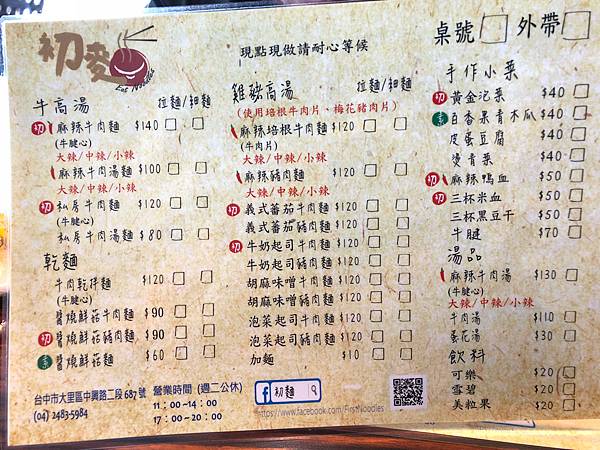 初麥
Eat Noodles
現點現做請耐心等候
桌號 外帶
牛高湯 拉麵/細麵
初 麻辣牛肉麵 $140
(牛腱心)
大辣/中辣/小辣
麻辣牛肉湯麵 $100
大辣/中辣/小辣
初 私房牛肉麵 $120
(牛腱心)
私房牛肉湯麵 $80
乾麵
牛肉乾拌麵 $120
(牛腱心)
醬燒鮮菇牛肉麵 $90
初 醬燒鮮菇豬肉麵 $90
素 醬燒鮮菇麵 $60
雞豬高湯 拉麵/細麵
(使用培根牛肉片、梅花豬肉片)
初 麻辣培根牛肉麵 $120
(牛肉片)
大辣/中辣/小辣
麻辣豬肉麵 $120
大辣/中辣/小辣
初 義式蕃茄牛肉麵 $120
義式蕃茄豬肉麵 $120
初 牛奶起司牛肉麵 $120
牛奶起司豬肉麵 $120
胡麻味噌牛肉麵 $120
胡麻味噌豬肉麵 $120
泡菜起司牛肉麵 $120
泡菜起司豬肉麵 $120
加麵 $10
手作小菜
初 黃金泡菜 $40
素 百香果青木瓜 $40
皮蛋豆腐 $40
燙青菜 $40
初 麻辣鴨血 $50
初 三杯米血 $50
三杯黑豆干 $50
牛腱 $70
湯品
麻辣牛肉湯 $130
(牛腱心)
大辣/中辣/小辣
牛肉湯 $110
蛋花湯 $30
飲料
可樂 $20
雪碧 $20
美粒果 $20
台中市大里區中興路二段687號
(04) 2483-5984
營業時間 (週二公休)
11:00~14:00
17:00~20:00
f 初麵
https://www.facebook.com/FirstNoodles